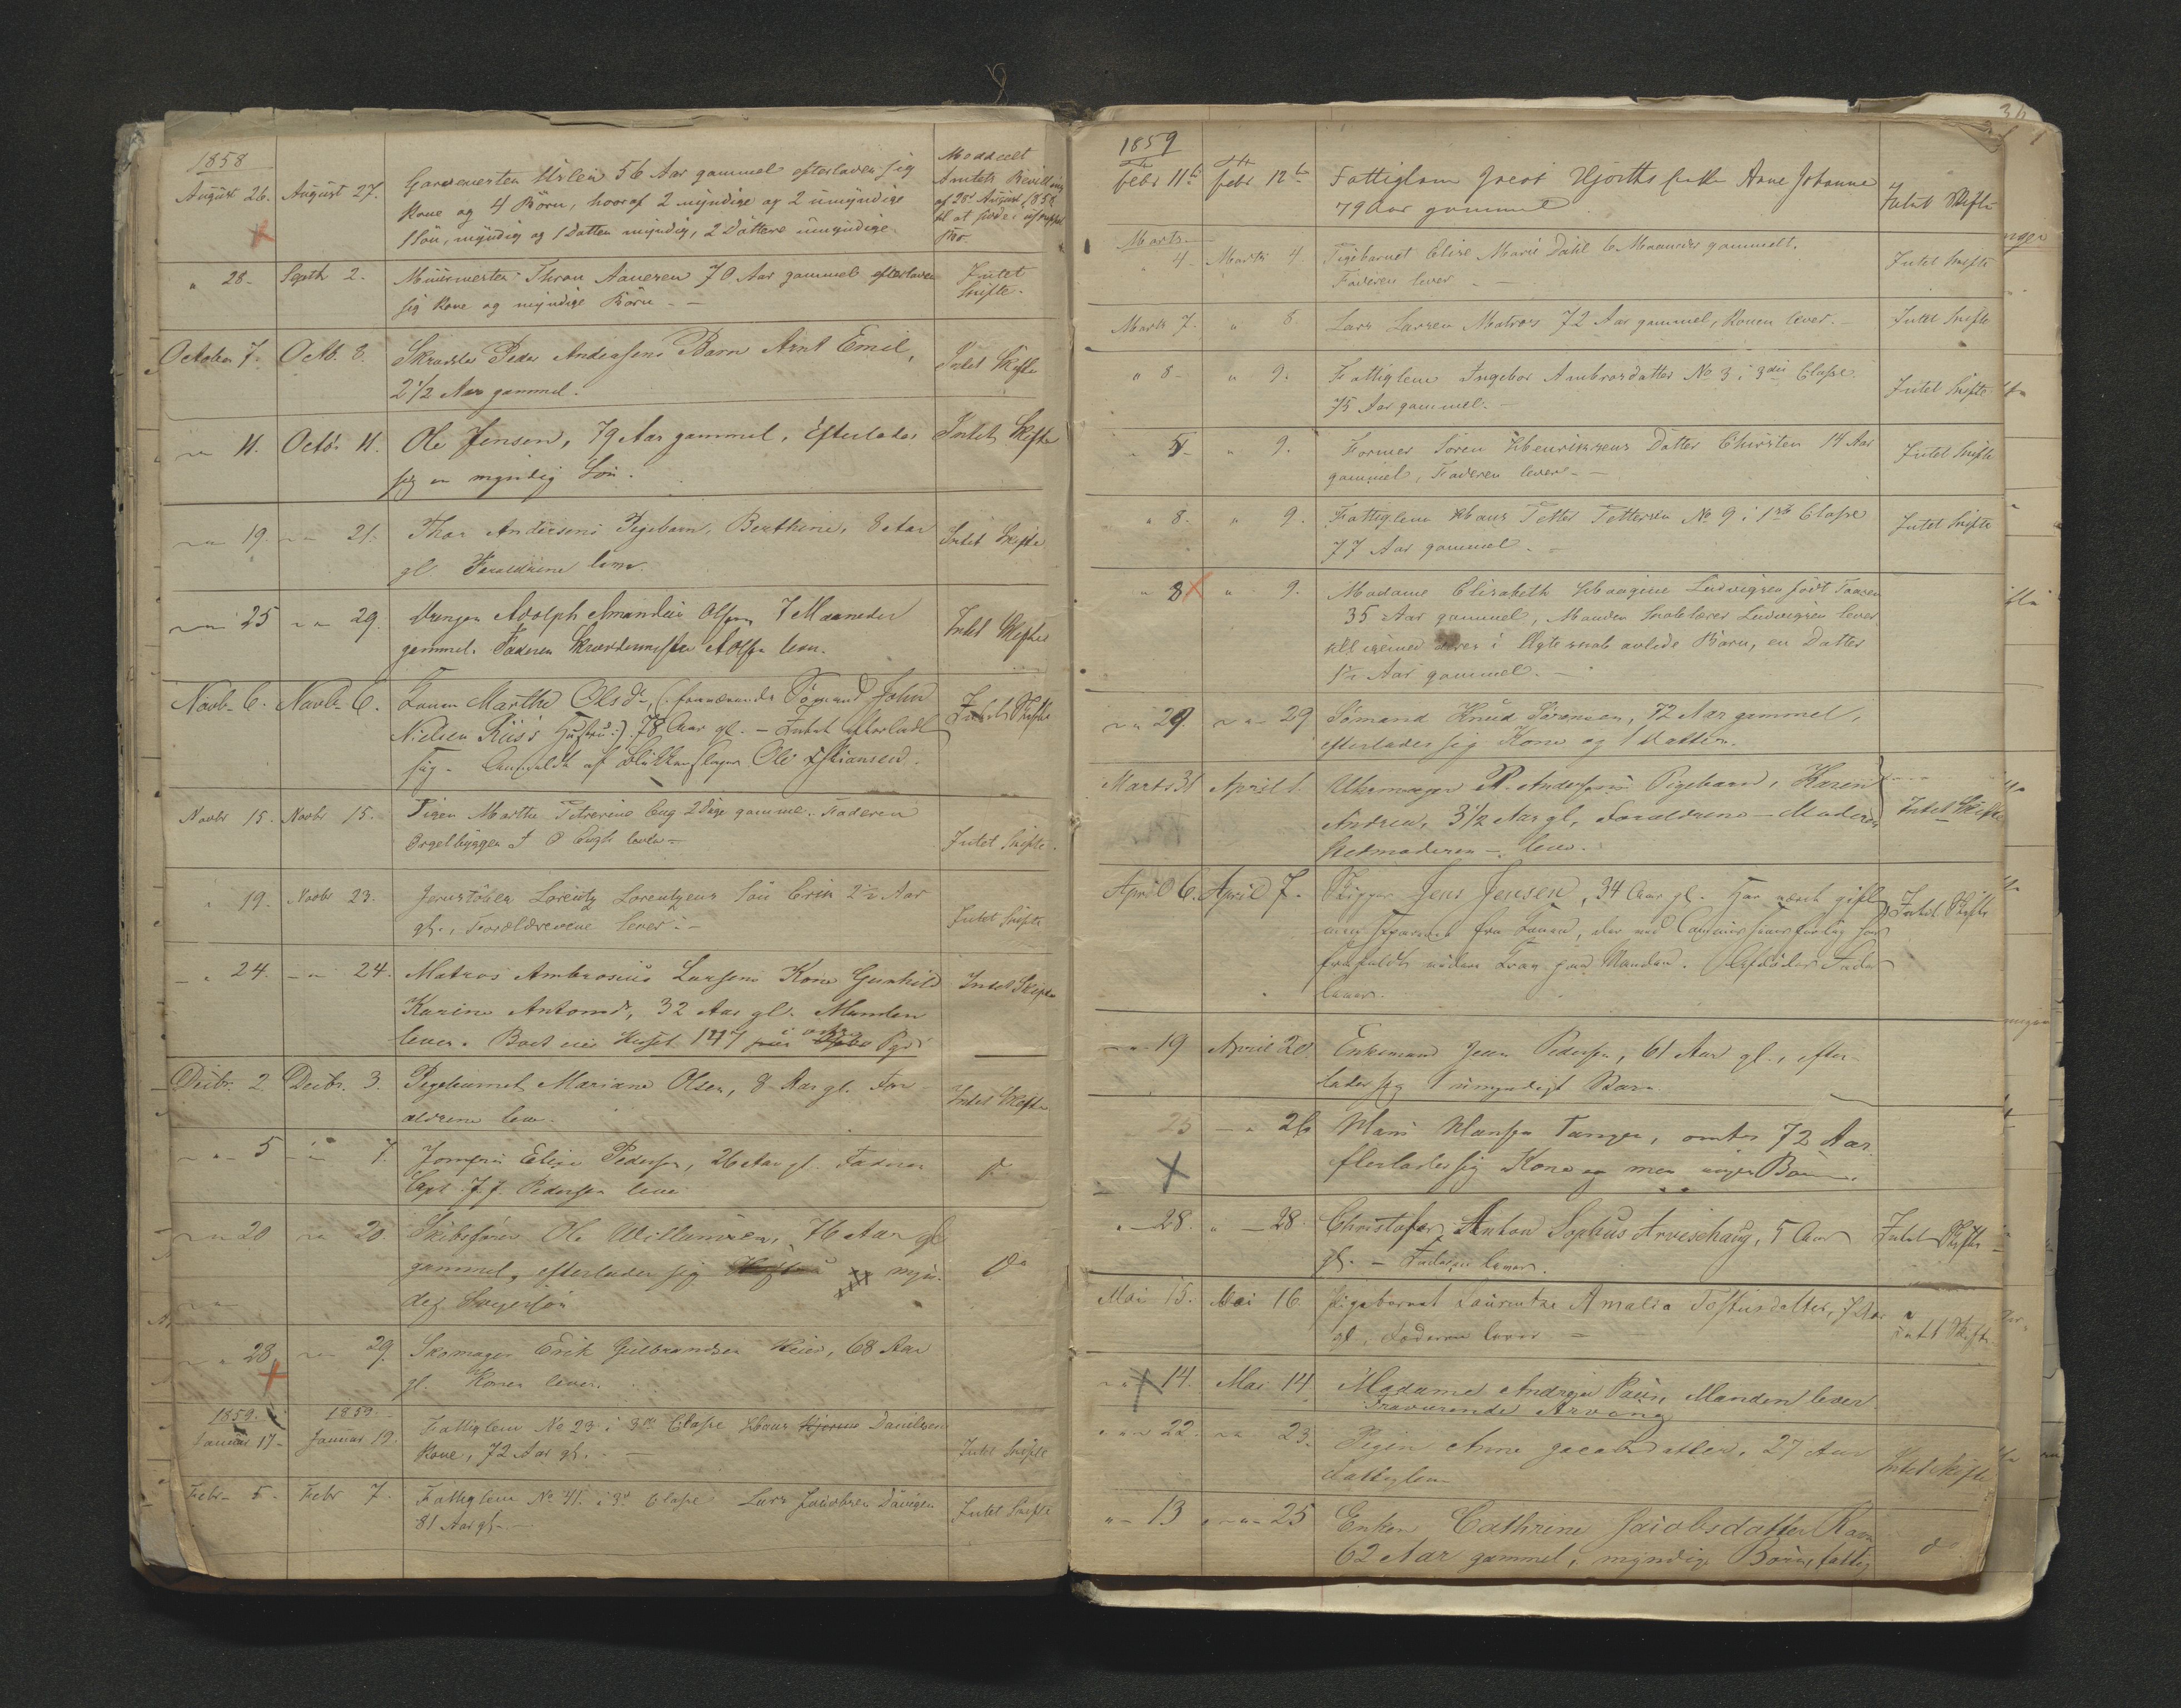 1858
August 26. August 27. Garvemester Urlen 56 Aar gammel efterlader sig
Kone og 4 Börn, hvoraf 2 myndige og 2 umyndige
1 Sön, myndig og 1 Datter myndig, 2 Döttere umyndige
Meddeelt
Amtets Bevilling
af 28 August 1858
til at sidde i uskiftet
Bo.
" 28. Septb 2. Muurmester Thron Aanesen 70 Aar gammel efterlader
sig Kone og myndige Börn - -
Intet
Skifte.
October 7. Octb. 8. Skrædder Peder Andersens Barn Arnt Emil,
2 1/2 Aar gammel.
Intet Skifte
" 11. Octbr 11. Ole Jensen, 79 Aar gammel, Efterlader
sig en myndig Sön.
Intet Skifte
" 19. " 21. Thor Andersens Pigebarn, Berthine, 8 Aar
gl Forældrene lever.
Intet Skifte
" 25 " 29. Drengen Adolph Amandus Olsen, 7 Maaneder
gammel. Faderen Skræddermester Aolsen lever.
Intet Skifte
Novb. 6. Novb. 6. Konen Marthe Olsdr. (: fraværende Sömand John
Nielsen Riis's Hustru :). 78 Aar gl. - Intet efterladt
sig. Anmeldt af Blikkenslager Ole Kstiansen.
Intet Skifte
Novbr 15. Novbr 15. Pigen Marthe Petrerine Eug 2 Dage gammel. Faderen
Orgelbygger P Eugh lever -
Intet Skifte.
" 19. Novbr 23. Jernstöber Lorentz Lorentzens Sön Erik 2 1/2 Aar
gl., Forældrerene lever. -
Intet Skifte
" 24. " 24. Matros Ambrosius Larsens Kone Gunhild
Karine Antonsdr, 32 Aar gl. Manden
lever. Boet eier Huset 147 i
Intet Skifte
Decbr. 2 Decbr. 3. Pigebarnet Mariane Olsen, 8 Aar gl. For-
ældrene lever.
Intet Skifte
" 5 " 7. Jomfru Elise Pedersen, 26 Aar gl. Faderen
Capt. J. J. Pedersen lever
Do
" 20 " 20. Skibsförer Ole Willumsen, 76 Aar gl
gammel, efterlader sig myn-
dig
Do
" 28 " 29. Skomager Erik Gulbrandsen Heier, 68 Aar
gl. Konen lever.
1859. 1859.
Januar 17. Januar 19. Fattiglem No 23 i 3die Classe Hans Danielsens
Kone, 72 Aar gl. -
Intet Skifte
Febr. 5. Febr 7. Fattiglem No 41. i 3d Classe Lars Jacobsen
81 Aar gl. -
Intet Skifte
1859
Febr 11te Febr 12te Fattiglem Jacob Hjorths Enke Anne Johanne
79 Aar gammel
Intet Skifte
Marts
4. Marts 4 Pigebarnet Elise Marie Dahl 6 Maaneder gammelt.
Faderen lever - -
Intet Skifte
Marts 7. " 8. Lars Larsen Matros 72 Aar gammel, Konen lever. -
Intet Skifte
" 8 - " 9. Fattiglem Ingebor Ambrosdatter No 3 i 3die Classe.
75 Aar gammel. -
Intet Skifte
" 5 - " 9. Former Sören Henriksens Datter Christen 14 Aar
gammel, Faderen lever - -
Intet Skifte
" 8. " 9. Fattiglem Hans Petter Pettersen No 9 i 1ste Classe
77 Aar gammel. -
Intet Skifte
" 8 " 9. Madame Elisabeth Haagine Ludvigsen födt
35 Aar gammel, Manden Ludvigsen lever
i Ægteskab avlede Barn, en Datter
1 1/2 Aar gammel. -
" 29. " 29 Sömand Knud Sörensen, 72 Aar gammel,
efterlader sig Kone og 1 Datter.
Marts 31 April 1. Uhrmager P. Andersens Pigebarn, Karen
Andrea, 3 1/2 Aar gl, Forældrene - Moderen
Stedmoderen - lever.
Intet Skifte
April 6. April 7. Rigger Jens Jensen, 34 Aar gl. Har været gift
men separeret fra Konen,
Manden. Afdödes Fader
lever.
Intet Skifte
" 19 April 20. Enkemand Jens Pedersen, 61 Aar gl., efter-
lader sig 1 umyndigt Barn
25 " 26 Hans Hansen Tangen, omtr 72 Aar
efterlader sig Kone men ingen Börn.
" 28. " 28 Christofer Anton Sophus Arveschaug, 5 Aar
gl. - Faderen lever.
Intet Skifte
Mai 15. Mai 16. Pigebarnet Laurentze Amalia Tostensdatter, 7 Aar
gl, Faderen lever -
Intet Skifte
" 14. Mai 14 Madame Andrea Paus, Manden lever
Fraværende Arving
" 22. " 23. Pigen Anne Jacobsdatter, 27 Aar
Fattiglem
Intet Skifte
" 13 " 25 Enken Cathrine Jacobsdatter Ravn
62 Aar gammel, myndige Börn, fattig
do